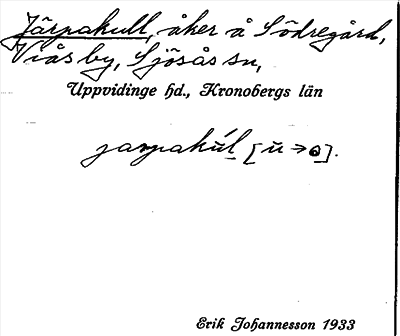 Järpakull, åker å Södregård,
Viås by, Sjösås sn,
Uppvidinge hd., Kronobergs län
jarpakúl [u→o].
Erik Johannesson 1933